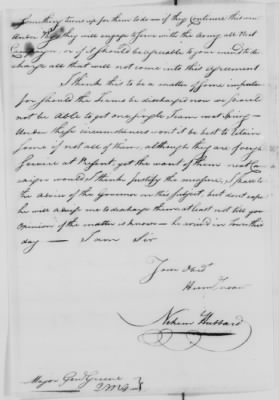 something turns up for them to do or if they continue this un
under this they will engage to serve with the Army all Next
Campaign, or if it should be agreeable to you I need to dis
charge all that will not come into this agreement
I think this to be a matter of some importan
for should the Teams be discharged now we shall
not be able to get one single Team next Spring —
Under these circumstances won't it be best to retain
some if not all of them, although they are of very
Service at Present, yet the want of them next Cam
paign would I think justify the measure, I shall
the advice of the Governor on this subject, but don't expect
he will advise me to discharge them at least not till your
opinion of the matter is known — he arrived in town this
day — I am Sir
Your Obed
Hum Servt
Nehem Hubbard
Major Genl Greene
QMG